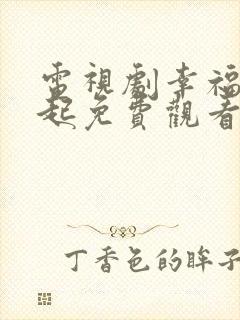 電視劇幸福
起免費觀看
丁香色的眸子